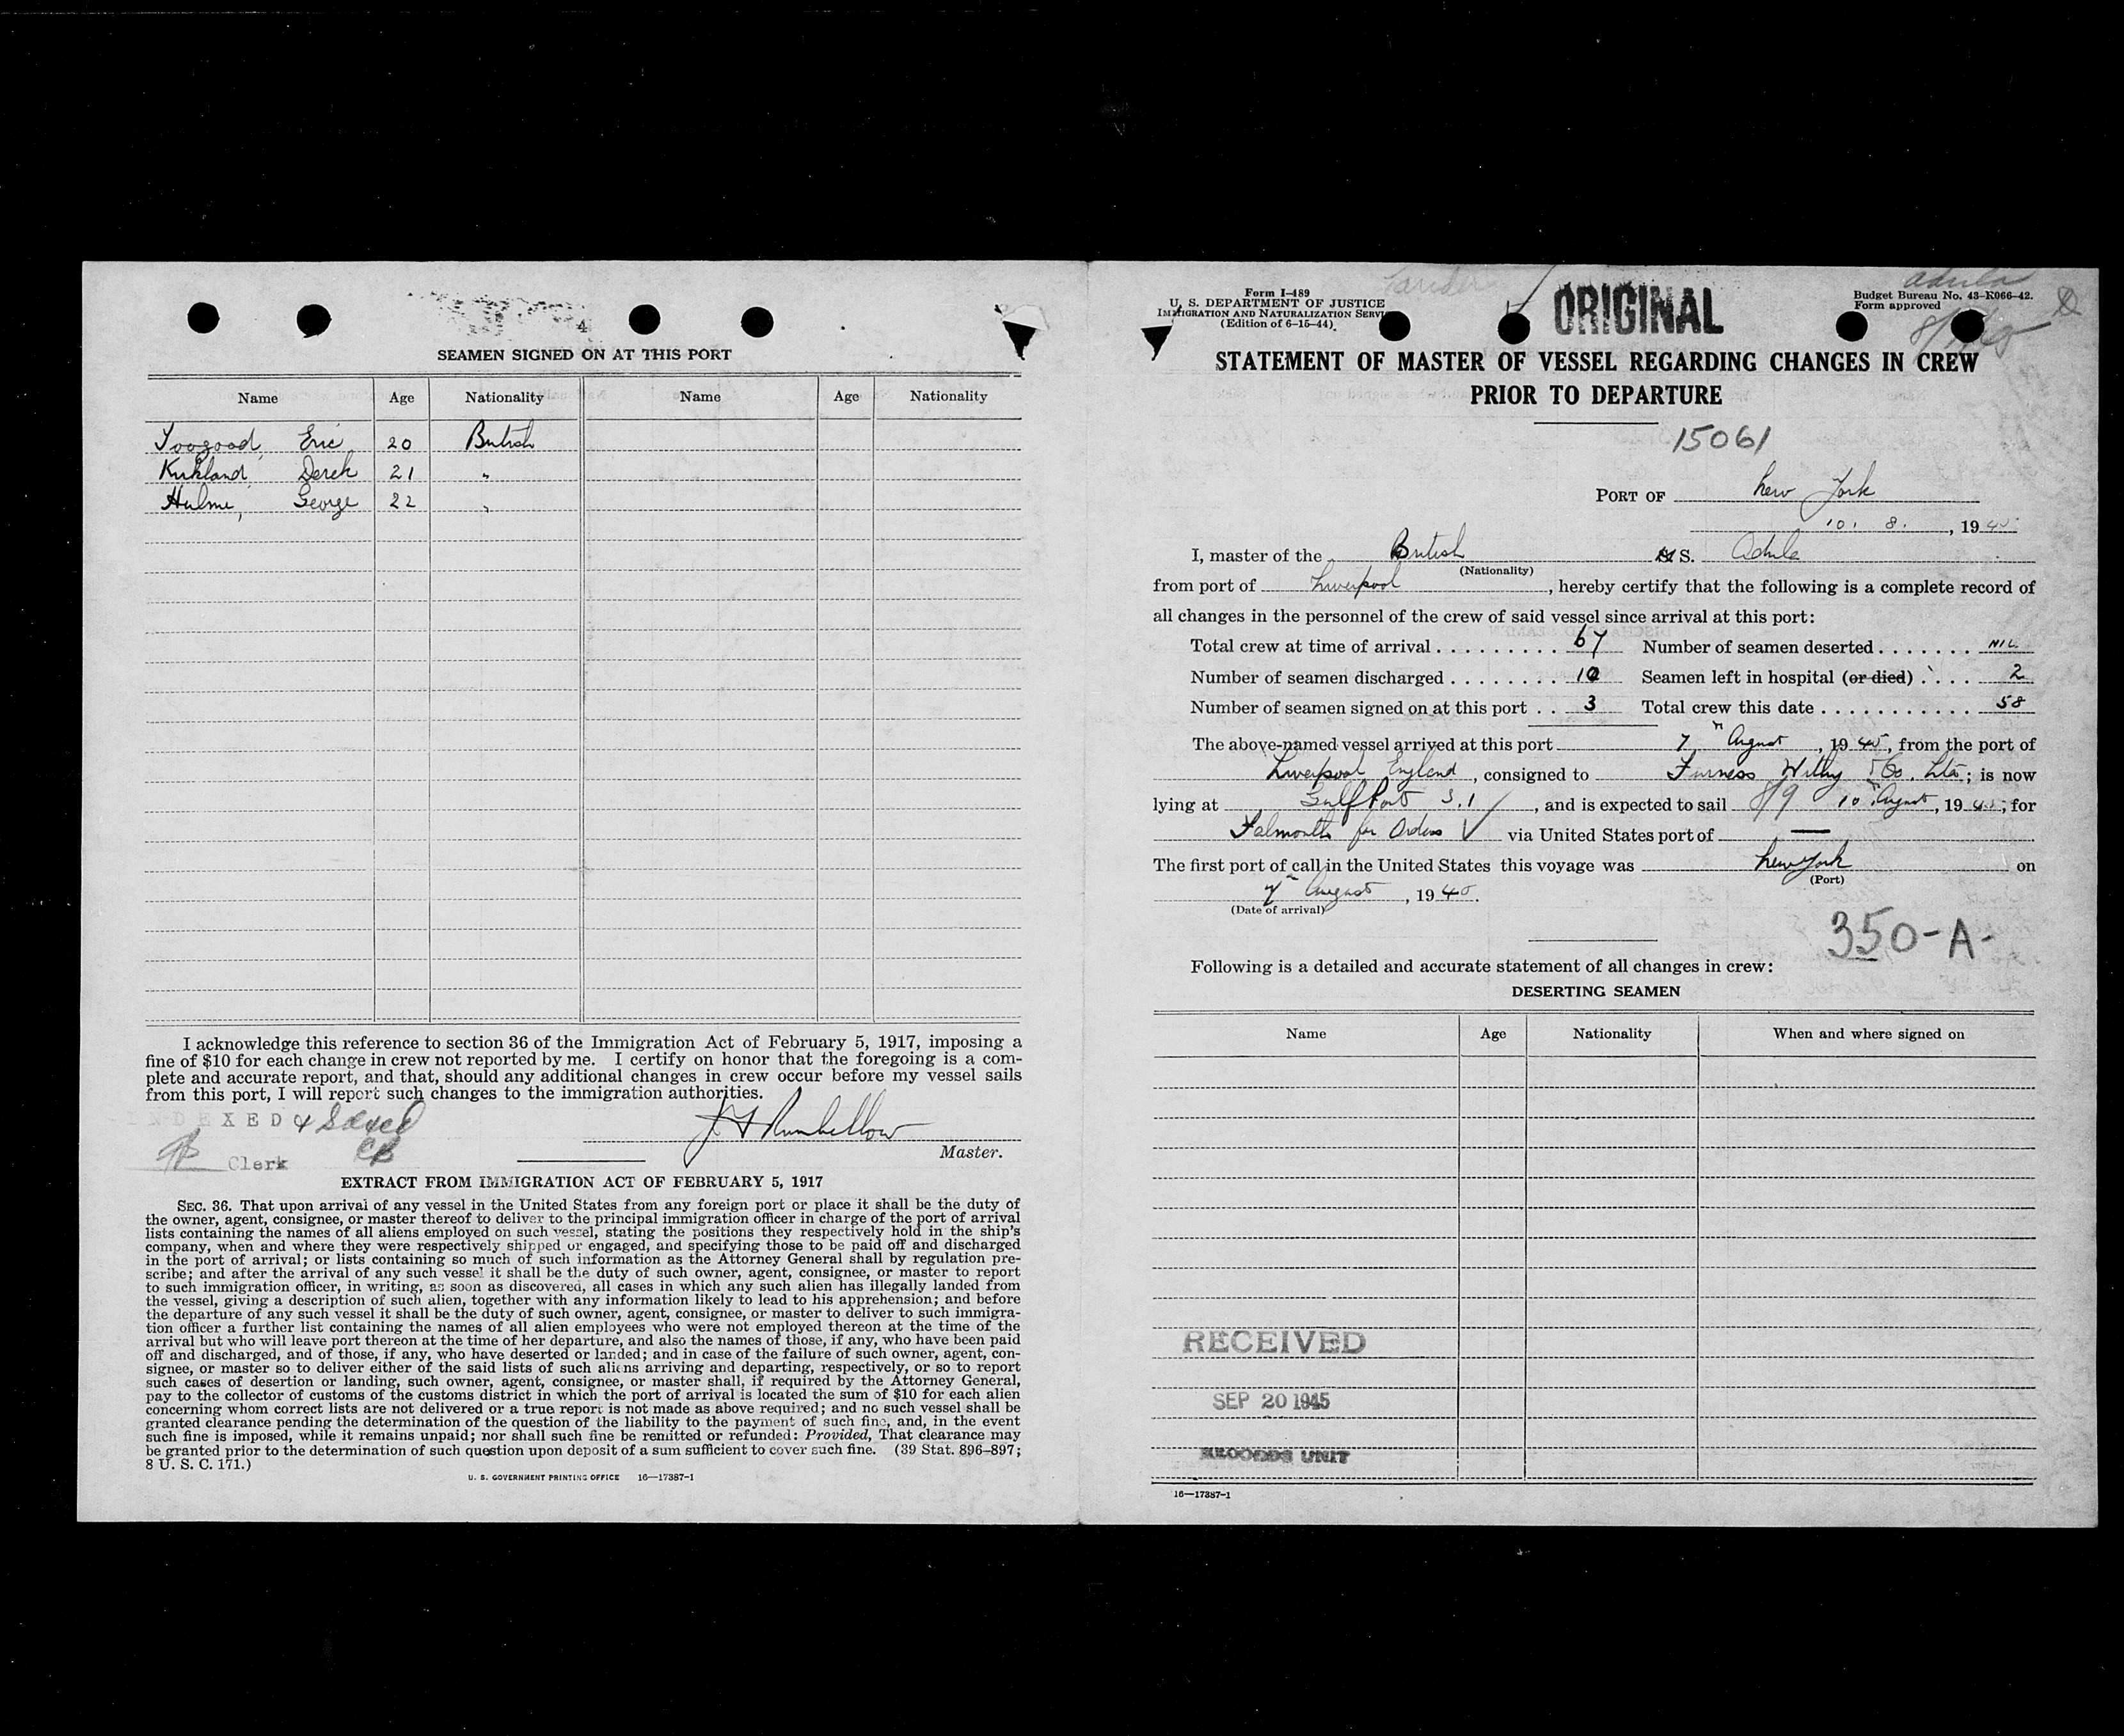 4
SEAMEN SIGNED ON AT THIS PORT
Name Age Nationality Name Age Nationality
Toogood, Eric 20 British
Kirkland, Derek 21 "
Hulme, George 22 "
I acknowledge this reference to section 36 of the Immigration Act of February 5, 1917, imposing a
fine of $10 for each change in crew not reported by me. I certify on honor that the foregoing is a com-
plete and accurate report, and that, should any additional changes in crew occur before my vessel sails
from this port, I will report such changes to the immigration authorities.
INDEXED
Clerk
Master.
EXTRACT FROM IMMIGRATION ACT OF FEBRUARY 5, 1917
SEC. 36. That upon arrival of any vessel in the United States from any foreign port or place it shall be the duty of
the owner, agent, consignee, or master thereof to deliver to the principal immigration officer in charge of the port of arrival
lists containing the names of all aliens employed on such vessel, stating the positions they respectively hold in the ship's
company, when and where they were respectively shipped or engaged, and specifying those to be paid off and discharged
in the port of arrival; or lists containing so much of such information as the Attorney General shall by regulation pre-
scribe; and after the arrival of any such vessel it shall be the duty of such owner, agent, consignee, or master to report
to such immigration officer, in writing, as soon as discovered, all cases in which any such alien has illegally landed from
the vessel, giving a description of such alien, together with any information likely to lead to his apprehension; and before
the departure of any such vessel it shall be the duty of such owner, agent, consignee, or master to deliver to such immigra-
tion officer a further list containing the names of all alien employees who were not employed thereon at the time of the
arrival but who will leave port thereon at the time of her departure, and also the names of those, if any, who have been paid
off and discharged, and of those, if any, who have deserted or landed; and in case of the failure of such owner, agent, con-
signee, or master so to deliver either of the said lists of such aliens arriving and departing, respectively, or so to report
such cases of desertion or landing, such owner, agent, consignee, or master shall, if required by the Attorney General,
pay to the collector of customs of the customs district in which the port of arrival is located the sum of $10 for each alien
concerning whom correct lists are not delivered or a true report is not made as above required; and no such vessel shall be
granted clearance pending the determination of the question of the liability to the payment of such fine, and, in the event
such fine is imposed, while it remains unpaid; nor shall such fine be remitted or refunded: Provided, That clearance may
be granted prior to the determination of such question upon deposit of a sum sufficient to cover such fine. (39 Stat. 896–897;
8 U. S. C. 171.)
U. S. GOVERNMENT PRINTING OFFICE 16—17387-1
Form I-489
U. S. DEPARTMENT OF JUSTICE
IMMIGRATION AND NATURALIZATION SERVI
(Edition of 6-15-44)
ORIGINAL
Adula
Budget Bureau No. 43-R066-42.
Form approved
STATEMENT OF MASTER OF VESSEL REGARDING CHANGES IN CREW
PRIOR TO DEPARTURE
15061
PORT OF New York
10. 8. , 1945
I, master of the British S. Adula
(Nationality)
from port of Liverpool , hereby certify that the following is a complete record of
all changes in the personnel of the crew of said vessel since arrival at this port:
Total crew at time of arrival 67 Number of seamen deserted NIL
Number of seamen discharged 10 Seamen left in hospital (or died) 2
Number of seamen signed on at this port 3 Total crew this date 58
The above-named vessel arrived at this port 7th August , 1945, from the port of
Liverpool England , consigned to Furness Withy & Co. Ltd; is now
lying at Gulf Port S.I , and is expected to sail 8/9 10th August, 1945; for
Falmouth for Orders via United States port of —
The first port of call in the United States this voyage was New York on
(Port)
7th August , 1945.
(Date of arrival)
350-A-
Following is a detailed and accurate statement of all changes in crew:
DESERTING SEAMEN
Name Age Nationality When and where signed on
RECEIVED
SEP 20 1945
RECORDS UNIT
16—17387-1